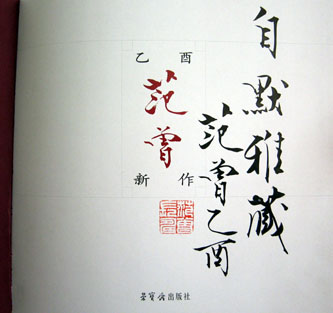 自默雅藏
范曾乙酉
乙酉
范曾
新作
荣宝斋出版社